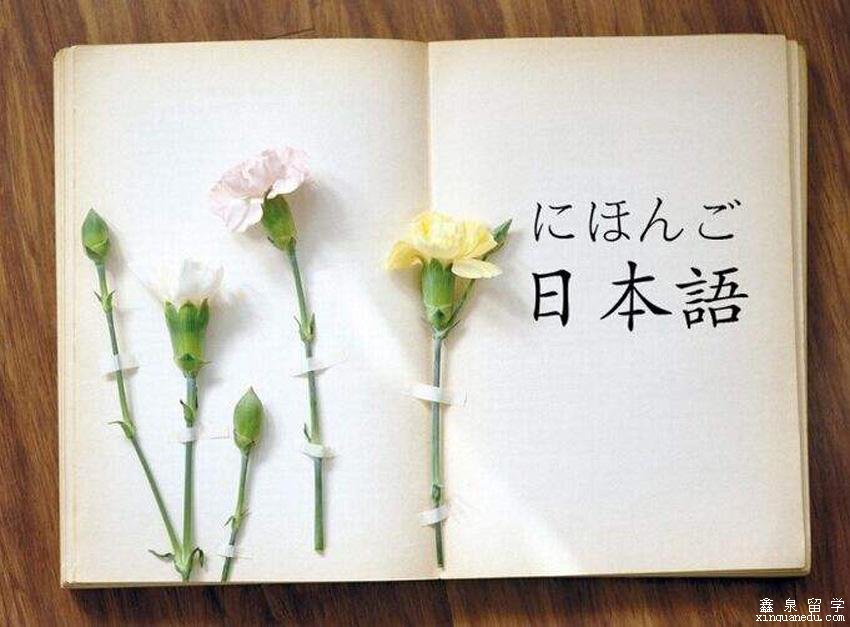 にほんご
日本語
鑫泉留学
xinquanedu.com